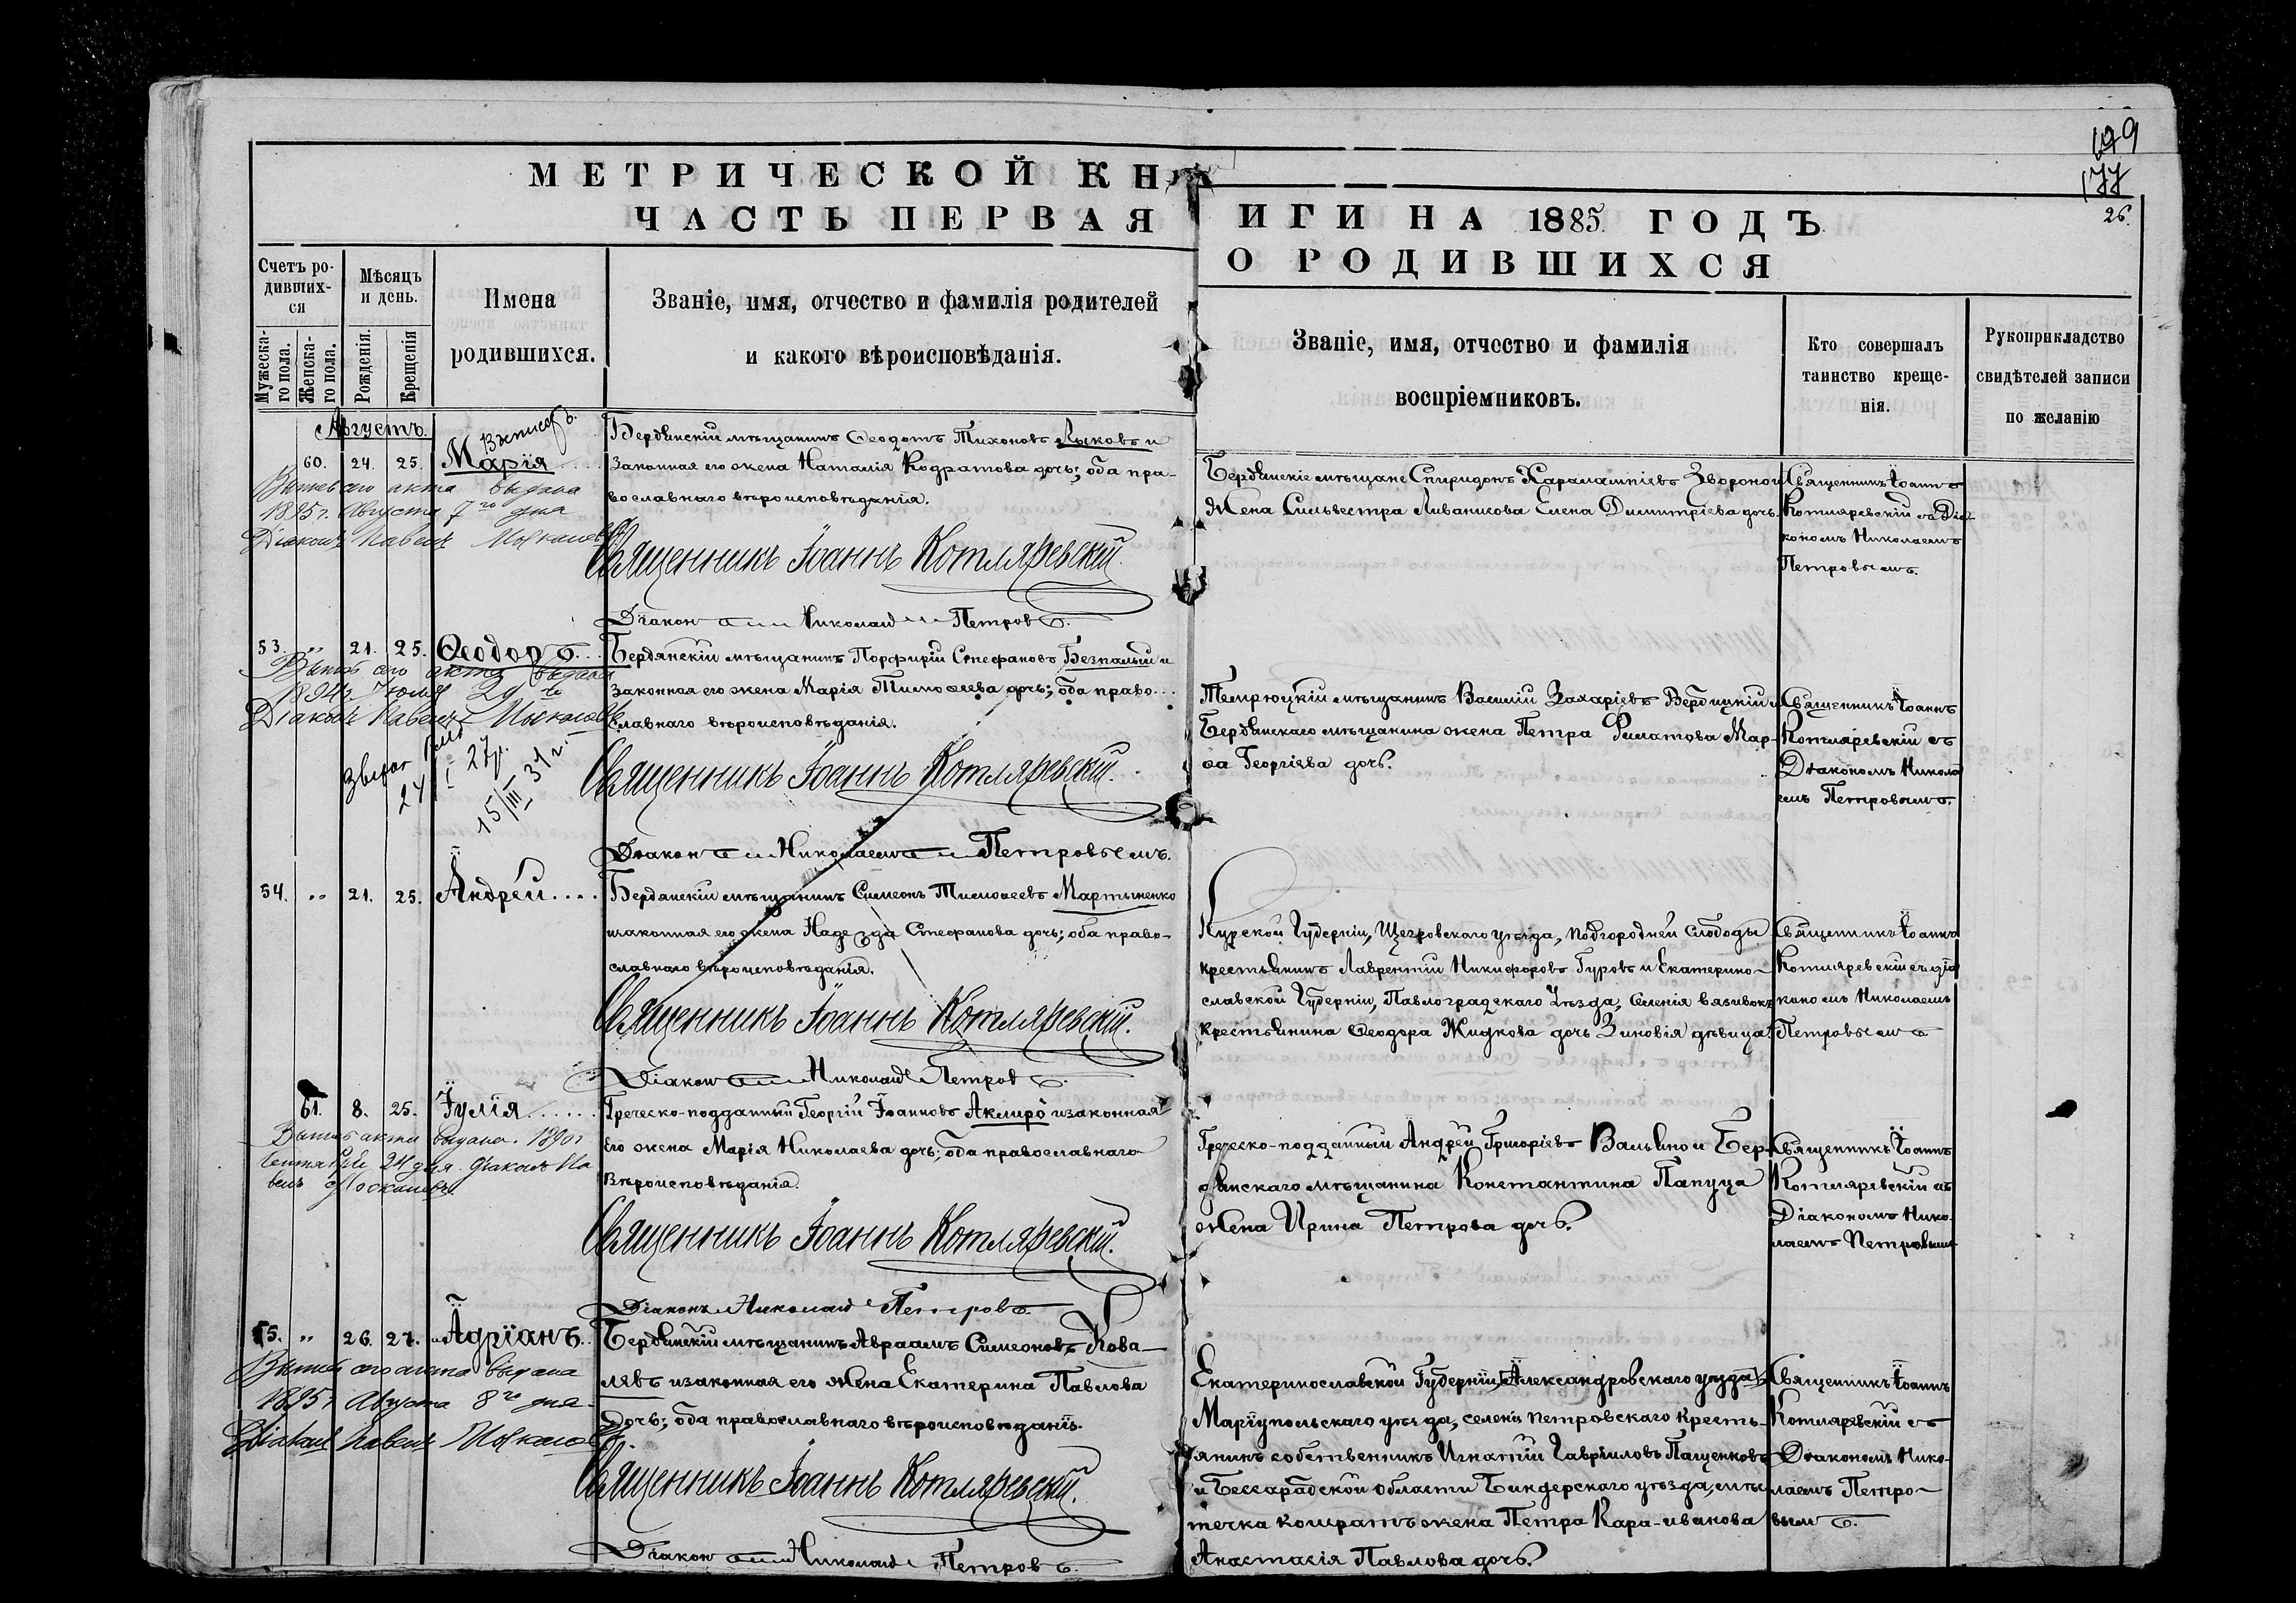 179
177
26.
МЕТРИЧЕСКОЙ КН
ИГИ НА 1885 ГОДЪ
ЧАСТЬ ПЕРВАЯ
О РОДИВШИХСЯ
Счетъ ро-
дивших-
ся
Мужеска-
го пола.
Женска-
го пола.
Мѣсяцъ
и день.
Рожденія.
Крещенія
Имена
родившихся.
Званіе, имя, отчество и фамилія родителей
и какого вѣроисповѣданія.
Званіе, имя, отчество и фамилія
воспріемниковъ.
Кто совершалъ
таинство креще-
нія.
Рукоприкладство
свидѣтелей записи
по желанію
Августъ.
60. 24. 25. Марія
Выпись сего акта выдана
1895 г. Августа 7го дня
Діаконъ Павелъ
Бердянскій мѣщанинъ Ѳеодотъ Тихоновъ Лыковъ и
законная его жена Наталія Кодратова дочь; оба пра-
вославнаго вѣроисповѣданія.
Священникъ Іоаннъ Котляревскій.
Діаконъ Николай Петровъ.
Бердянскіе мѣщане Спиридонъ Харалампіевъ
Жена Сильвестра Ливаникова Елена Димитріева дочь.
Священникъ Іоаннъ
Котляревскій съ Діа-
кономъ Николаемъ
Петровымъ.
53. " 21. 25. Ѳеодоръ
Выпись сего акта выдана
1894 г. Іюля 29 го
Діаконъ Павелъ
24/I 27 г.
15/III 31 г.
Бердянскій мѣщанинъ Порфирій Стефановъ Безпалый и
законная его жена Марія Тимоѳеева дочь; оба право-
славнаго вѣроисповѣданія.
Священникъ Іоаннъ Котляревскій.
Діаконъ Николаемъ Петровымъ.
Темрюцкій мѣщанинъ Василій Захаріевъ Вердицкій и
Бердянскаго мѣщанина жена Петра Филатова Мар-
ѳа Георгіева дочь.
Священникъ Іоаннъ
Котляревскій съ
Діакономъ Никола
емъ Петровымъ.
54. " 21. 25. Андрей
Бердянскій мѣщанинъ Симеонъ Тимоѳеевъ Мартыненко
изаконная его жена Надежда Стефанова дочь; оба право-
славнаго вѣроисповѣданія.
Священникъ Іоаннъ Котляревскій.
Діаконъ Николай Петровъ.
Курской Губерніи, Щегровскаго уѣзда, подгородней Слободы
крестьянинъ Лаврентій Никифоровъ Гуровъ и Екатерино-
славской Губерніи, Павлоградскаго Уѣзда, Селенія
крестьянина Ѳеодора Жидкова дочь Зиновія дѣвица.
Священникъ Іоаннъ
Котляревскій съ діа
кономъ Николаемъ
Петровымъ
61. 8. 25. Іулія
Выпись акта выдана. 1890 г
Сентября 24 дня. Діаконъ Па
велъ
Греческо-подданный Георгій Іоанновъ Акмиро изаконная
его жена Марія Николаева дочь; оба православнаго
вѣроисповѣданія.
Священникъ Іоаннъ Котляревскій.
Діаконъ Николай Петровъ.
Греческо-подданный Андрей Григоріевъ Вальяно и Бер-
дянскаго мѣщанина Константина Папуца
жена Ирина Петрова дочь.
Священникъ Іоаннъ
Котляревскій съ
Діакономъ Нико-
лаемъ Петровымъ
55. " 26. 27. Адріанъ
Выпись сего акта выдана
1895 г Августа 8го дня
Діаконъ Павелъ
Бердянскій мѣщанинъ Авраамъ Симеоновъ Кова-
лявъ изаконная его жена Екатерина Павлова
дочь; оба православнаго вѣроисповѣданія.
Священникъ Іоаннъ Котляревскій.
Діаконъ Николай Петровъ.
Екатеринославской Губерніи, Александровскаго уѣзда,
Маріупольскаго уѣзда, селенія петровскаго кресть-
янинъ собственникъ Игнатій Гавріиловъ Пащенковъ
и Бессарабской области Бендерскаго уѣзда, мѣс
течка комратъ жена Петра Кара-иванова
Анастасія Павлова дочь.
Священникъ Іоаннъ
Котляревскій съ
Діакономъ Нико-
лаемъ Петро-
вымъ.